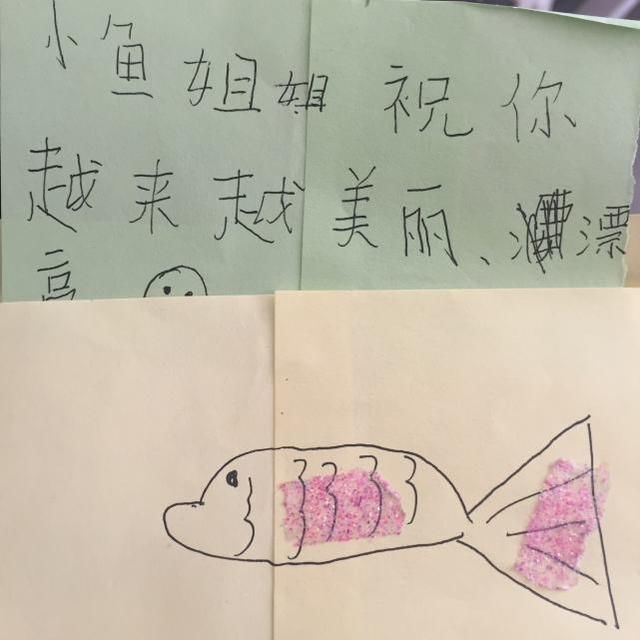 小鱼姐姐祝你
越来越美丽、漂